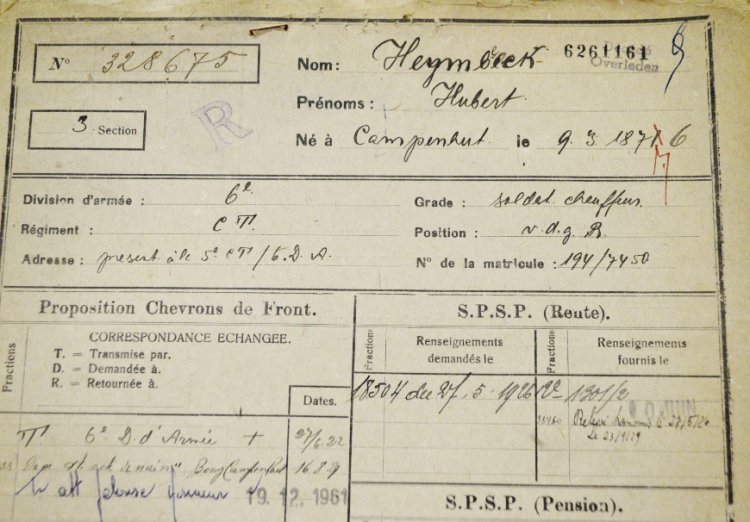 N° 328675
Nom: Heymbeeck 6261161
Overleden
Prénoms: Hubert.
3 Section
R
Né à Campenhout le 9. 3. 187 6
Division d'armée : 6e
Grade : soldat chauffeur.
Régiment : C T.
Position : v.d.g R.
Adresse : present à le 5e CT/6.D.A.
N° de la matricule : 194/7450
Proposition Chevrons de Front.
S.P.S.P. (Route).
Fractions
CORRESPONDANCE ECHANGÉE.
T. = Transmise par.
D. = Demandée à.
R. = Retournée à.
Dates.
Fractions
Renseignements demandés le
Fractions
Renseignements fournis le
18504 du 27. 5. 1926
1301/2
JUIN
Le 23/9/29
T 6e D. d'Armée + 27/6.22
16.8.
19.12.1961
S.P.S.P. (Pension).